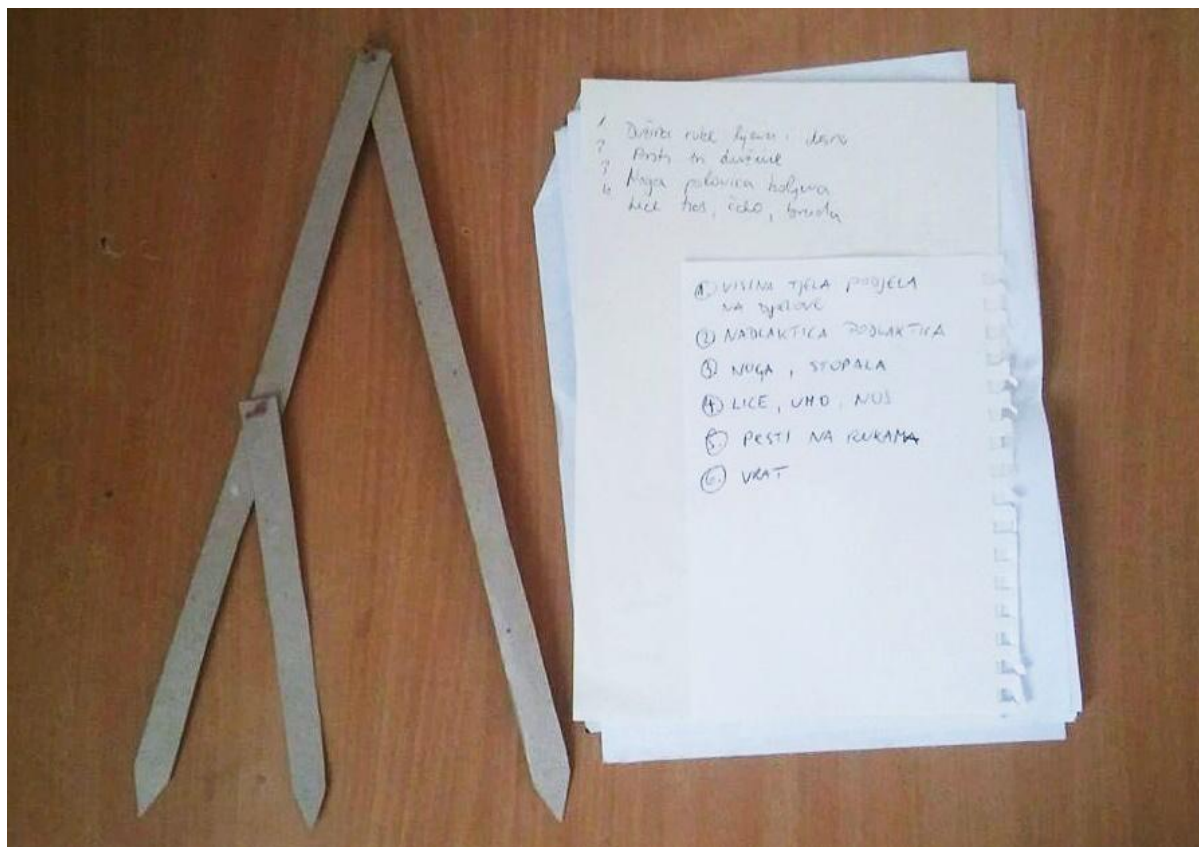 1 Dužina ruke lijeva i desna
2 Prsti tri dužine
3 Noga polovica koljena
4 Lice nos, čelo, brada
1. VISINA TJELA PODJELA
NA DJELOVE
2. NADLAKTICA PODLAKTICA
3. NOGA, STOPALA
4. LICE, UHO, NOS
5. PRSTI NA RUKAMA
6. VRAT